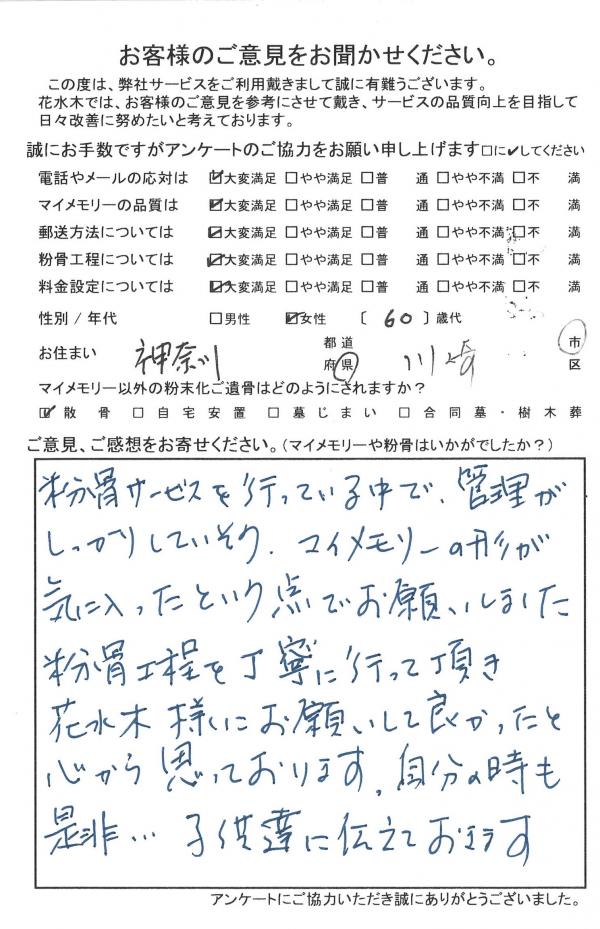 お客様のご意見をお聞かせください。
この度は、弊社サービスをご利用戴きまして誠に有難うございます。
花水木では、お客様のご意見を参考にさせて戴き、サービスの品質向上を目指して
日々改善に努めたいと考えております。
誠にお手数ですがアンケートのご協力をお願い申し上げます□に✔してください
電話やメールの応対は ☑大変満足 □やや満足 □普 通 □やや不満 □不 満
マイメモリーの品質は ☑大変満足 □やや満足 □普 通 □やや不満 □不 満
郵送方法については ☑大変満足 □やや満足 □普 通 □やや不満 □不 満
粉骨工程については ☑大変満足 □やや満足 □普 通 □やや不満 □不 満
料金設定については ☑大変満足 □やや満足 □普 通 □やや不満 □不 満
性別 / 年代 □男性 ☑女性 〔 60 〕歳代
お住まい 神奈川 都道府県 川崎 市区
マイメモリー以外の粉末化ご遺骨はどのようにされますか？
☑ 散骨 □ 自宅安置 □ 墓じまい □ 合同墓・樹木葬
ご意見、ご感想をお寄せください。(マイメモリーや粉骨はいかがでしたか？)
粉骨サービスを行っている中で、管理が
しっかりしていそう、マイメモリーの形が
気に入ったという点でお願いしました
粉骨工程を丁寧に行って頂き
花水木様にお願いして良かったと
心から思っております。自分の時も
是非… 子供達に伝えております
アンケートにご協力いただき誠にありがとうございました。